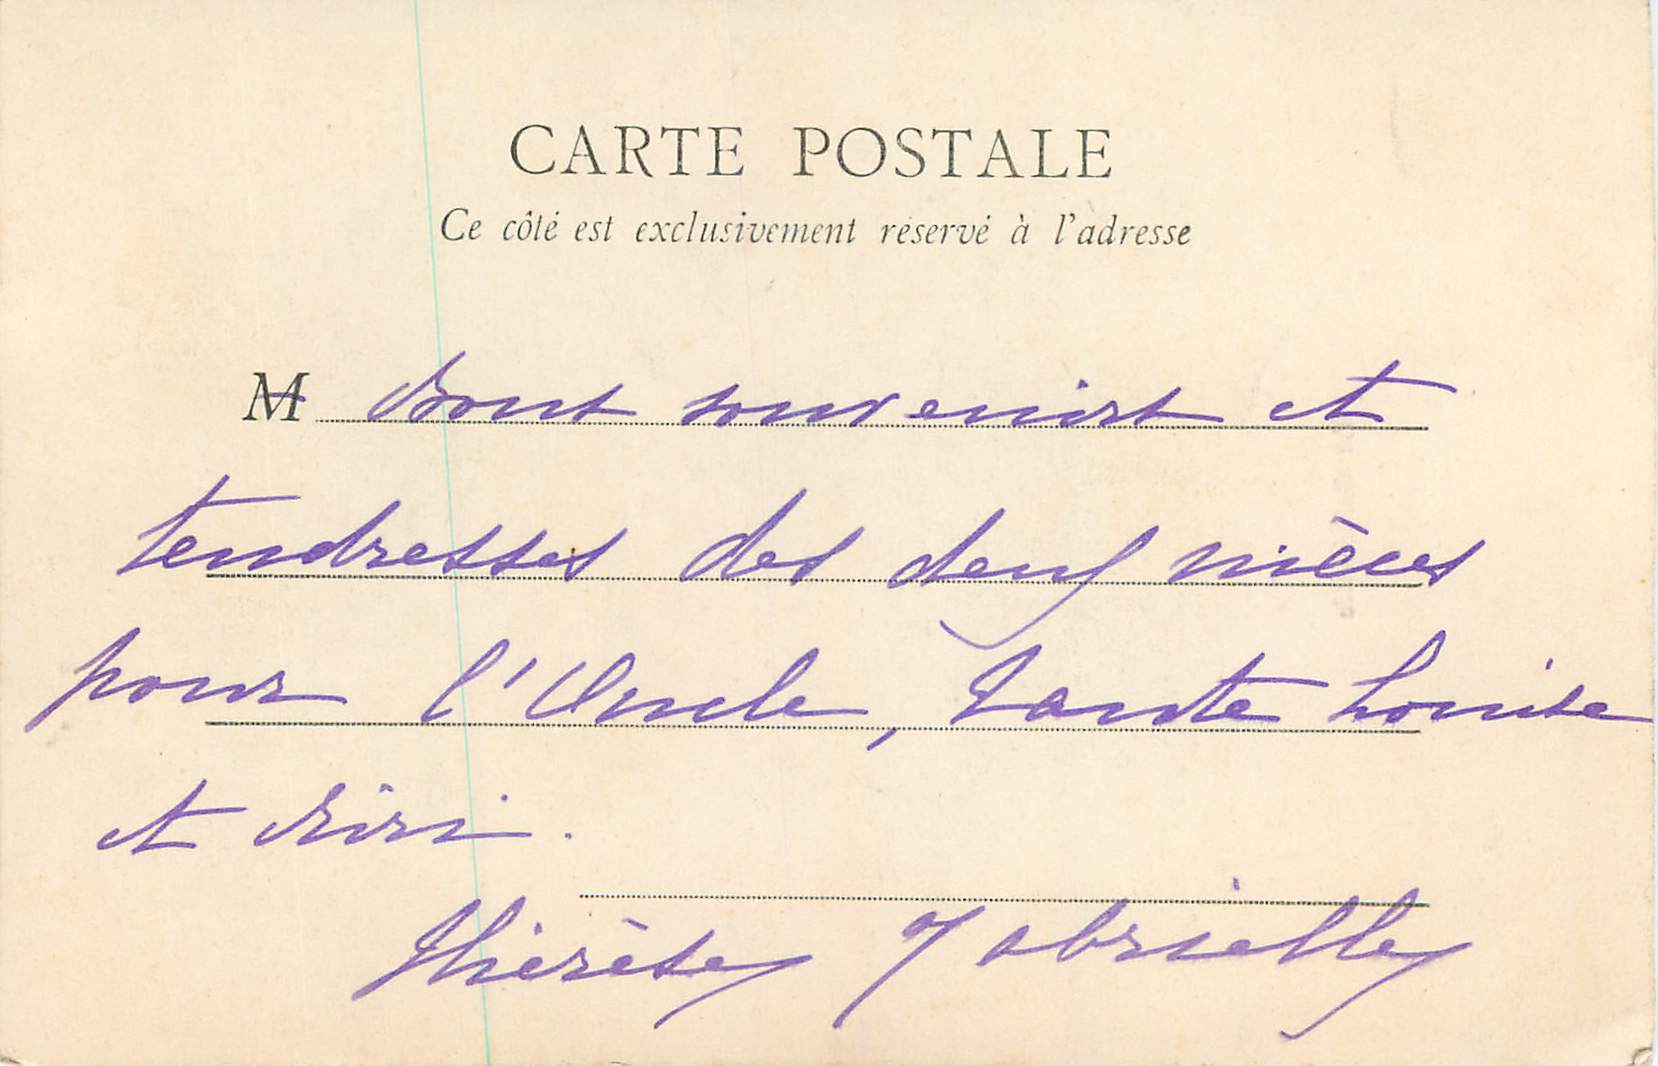 CARTE POSTALE
Ce côté est exclusivement réservé à l'adresse
M Bons souvenirs et
tendresses des deux nièces
pour l'Oncle, Tante Louise
et Riri.
Thérèse Gabrielle